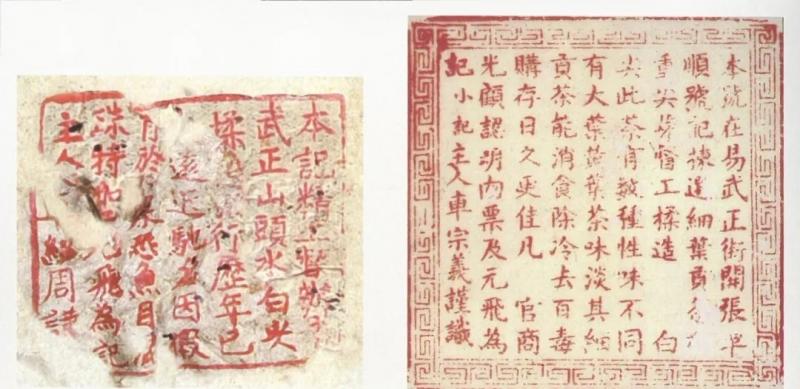 本記精督办
武正山頭水白尖
揉行歷年已
遠近馳名因假
有於恐魚目
珠特加飛為記
主人周謹
本號在易武正街開張車
順號記揀選細葉貢
尖芽督工揉造 白
尖此茶有數種性味不同
有大葉黃葉茶味淡其細
貢茶能消食除冷去百毒
購存日久更佳凡 官商
光顧認明內票及元飛為
記 小記主人車宗義謹識